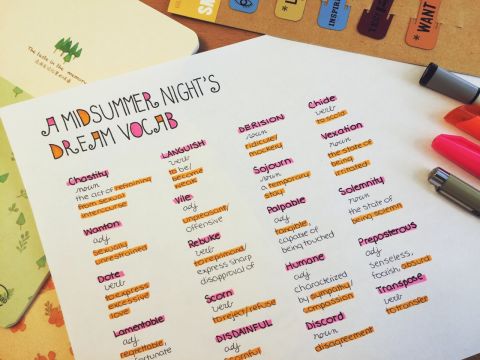 The taste in the memory
A MIDSUMMER NIGHT'S
DREAM VOCAB
Chastity
noun
the act of refraining
from sexual
intercourse
Wanton
adj
sexually
unrestrained
Dote
verb
to express
excessive
love
Lamentable
adj
regrettable,
LANGUISH
verb
to be/
become
weak
Vile
adj
unpleasant/
offensive
Rebuke
verb
to reprimand/
express sharp
disapproval of
Scorn
verb
to reject/refuse
DISDAINFUL
adj
DERISION
noun
ridicule/
mockery
Sojourn
noun
a temporary
stay
Palpable
adj
tangible,
capable of
being touched
Humane
adj
characterized
by sympathy/
compassion
Discord
noun
disagreement
Chide
verb
to scold
Vexation
noun
the state of
being
irritated
Solemnity
noun
the state of
being solemn
Preposterous
adj
senseless,
foolish, absurd
Transpose
verb
to transfer
* WANT